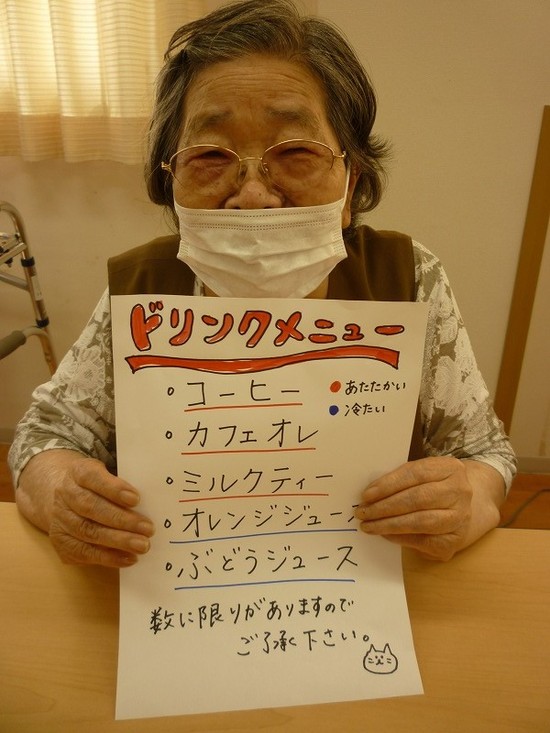 ドリンクメニュー
・コーヒー
●あたたかい
●冷たい
・カフェオレ
・ミルクティー
・オレンジジュース
・ぶどうジュース
数に限りがありますので
ご了承下さい。